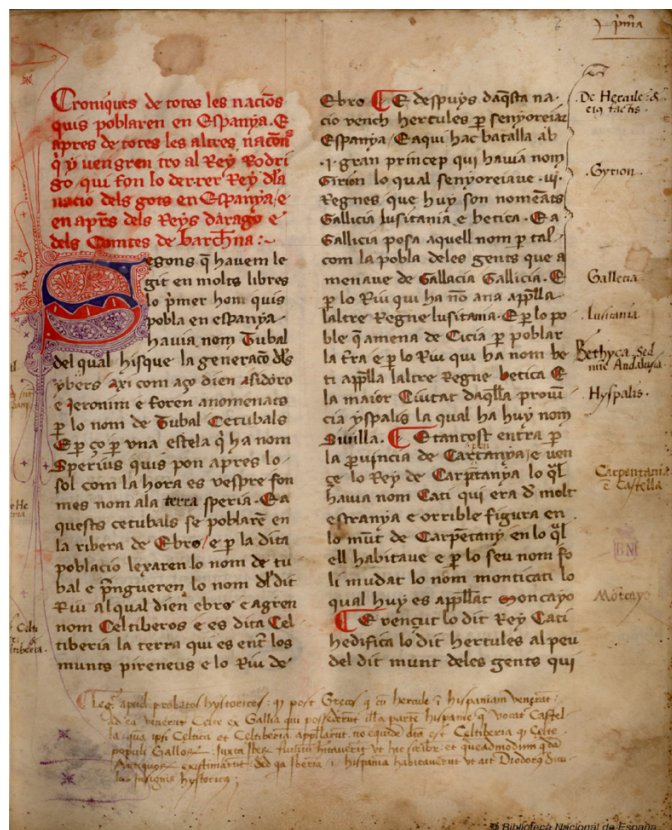 p̄ma
Croniques de totes les nacio̅s
quis poblaren en Espanya. E
apres de totes les altres nacōns
q̄ y vengren tro al Rey Rodri
go qui fon lo derrer Rey d̄la
nacio dels gots en Espanya e
en apr̄s dels Reys darago e
dels Comtes de barch̄na :~
Segons q̄ havem le
git en molts libres
lo p̄mer hom quis
pobla en espanya
havia nom Tubal
del qual hisque la generaco̅ d̄ls
ybers axi com aço dien asidoro
e Jeronim e foren anomenats
p̱ lo nom de Tubal Cetubals
E p̱ ço p̱ vna estela q̄ ha nom
Sperius quis pon apres lo
sol com la hora es vespre fon
mes nom ala terra speria. E a
quests cetubals se poblarē en
la ribera de Ebro / e p̱ la dita
poblacio lexaren lo nom de tu
bal e p̄ngueren lo nom d̄l dit
Riu al qual dien ebro e agren
nom Celtiberos e es dita Cel
tiberia la terra qui es ent̄ los
munts pireneus e lo Riu de
Ebro E despuys daq̄sta na
cio vench hercules p̱ senyoreiar
Espanya / E aqui hac batalla ab
.i. gran princep qui hauia nom
Girion lo qual senyoreiaue .iii.
Regnes que huy son nomēats
Gallicia lusitania e betica. E a
Gallicia posa aquell nom p̱ tal
com la pobla deles gents que a
menaue de Gallacia Gallicia. E
p̱ lo Riu qui ha nō ana app̄lla
laltre Regne lusitania. E p̱ lo po
ble q̄ amena de Cicia p̱ poblar
la t̄ra e p̱ lo Riu qui ha nom be
ti app̄lla laltre Regne betica E
la maior Ciutat daq̄lla proui̅
cia yspalis la qual ha huy nom
Siuilla. E tantost entra p̱
la p̱uincia de Cartanya e ven
ge lo Rey de Carp̄tanya lo q̄l
hauia nom Caci qui era d̄ molt
estranya e orrible figura en
lo mūt de Carpetany en lo q̄l
ell habitaue e p̱ lo seu nom fo
li mudat lo nom monticati lo
qual huy es app̄llat Moncayo
E vençut lo dit Rey Caci
hedifica lo dit hercules al peu
del dit munt deles gents qui
De Hercule &
eiq̄ factis.
Gyrion.
Gallecia
Lusitania
Bethyca
Andalusia
Hyspalis.
Carpentania
ē Castella
Mōtcayo
BN
apud probatos hystoricos: q̄ post Grecos q̄ cū hercule ī hispaniam venerāt:
ad eā venerūt Celte ex Gallia qui possederūt illā partē hispanie q̄ vocāt Castel
la qua ipsi Celtica et Celtiberia app̄llarūt
populi Gallor̄
Biblioteca Nacional de España